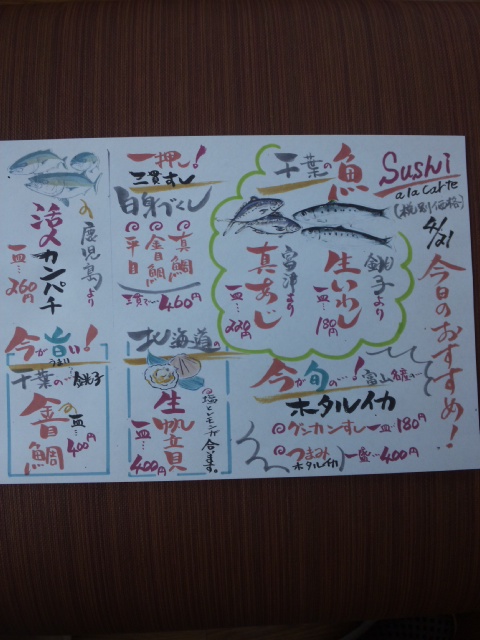 Sushi
a la Carte
(税別価格)
4/21
今日のおすすめ!
千葉の魚
銚子より
生いわし
一皿…180円
富津より
真あじ
一皿…220円
今が旬の…!
富山産
ホタルイカ
グンカンすし一皿…180円
つまみ
ホタルイカ
一盛…400円
一押し!
三貫すし
白身づくし
真鯛
金目鯛
平目
三貫で…460円
北海道の
生帆立貝
一皿…400円
塩とレモンが合います。
鹿児島より
活〆カンパチ
一皿…260円
今が旨い!
うまい
千葉の…銚子
金目鯛
一皿…400円